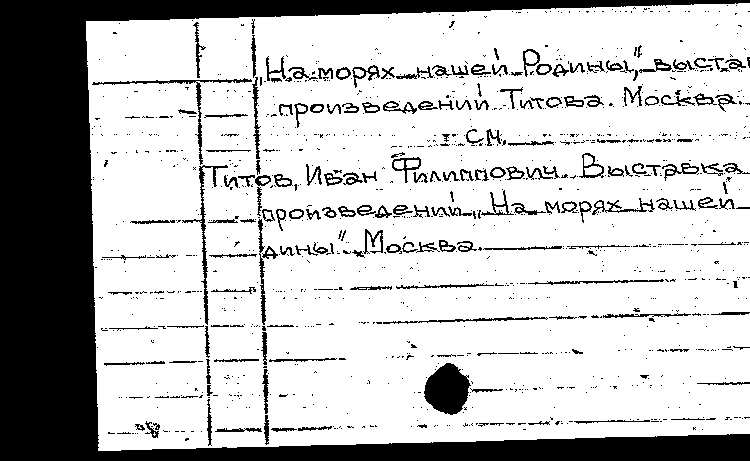 „На морях нашей Родины“, выста
произведений Титова. Москва.
см.
Титов, Иван Филиппович. Выставка
произведений „На морях нашей
дины“. Москва.